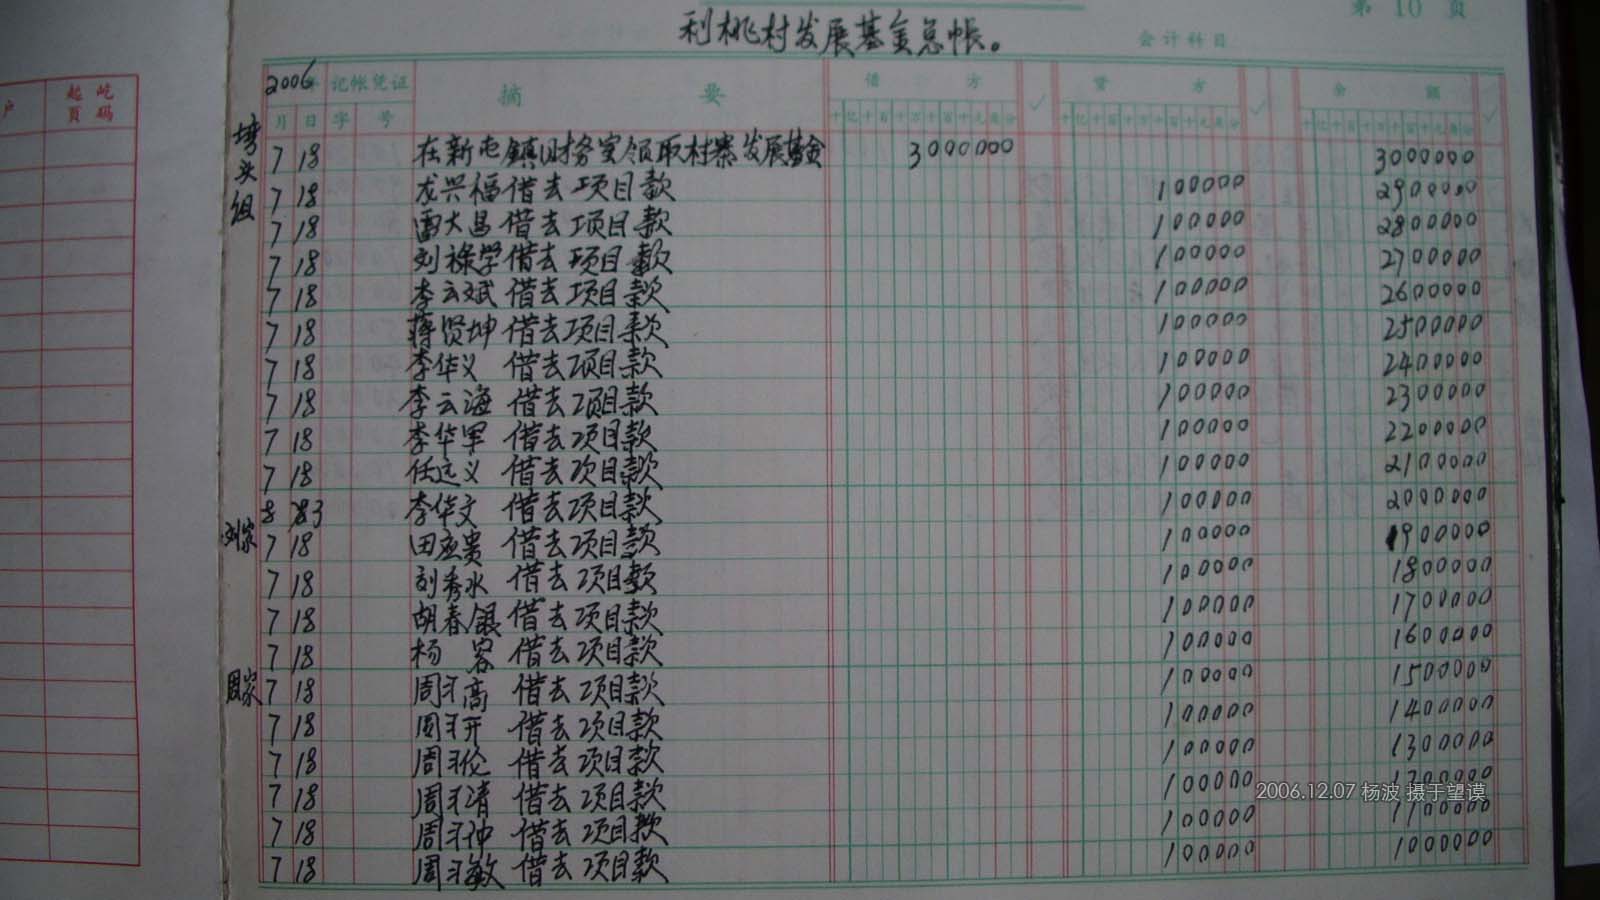 第 10 页
利桃村发展基金总帐。
会计科目
户 起讫頁碼
2006年 记帐凭证 摘 要 借 方 ✓ 贷 方 ✓ 余 额 ✓
月 日 字 号 十亿千百十万千百十元角分 十亿千百十万千百十元角分 十亿千百十万千百十元角分
7 18 在新屯镇财务室领取村寨发展基金 3000000 3000000
头组
7 18 龙兴福借去项目款 100000 2900000
7 18 雷大昌借去项目款 100000 2800000
7 18 刘禄学借去项目款 100000 2700000
7 18 李云斌借去项目款 100000 2600000
7 18 蒋贤坤借去项目款 100000 2500000
7 18 李华义 借去项目款 100000 2400000
7 18 李云海 借去项目款 100000 2300000
7 18 李华军 借去项目款 100000 2200000
7 18 任远义 借去项目款 100000 2100000
8 23 李华文 借去项目款 100000 2000000
刘家 7 18 田应贵 借去项目款 100000 1900000
7 18 刘秀水 借去项目款 100000 1800000
7 18 胡春银 借去项目款 100000 1700000
7 18 杨 客 借去项目款 100000 1600000
周家 7 18 周 高 借去项目款 100000 1500000
7 18 周 开 借去项目款 100000 1400000
7 18 周 伦 借去项目款 100000 1300000
7 18 周 清 借去项目款 100000 1200000
7 18 周 冲 借去项目款 100000 1100000
7 18 周 敏 借去项目款 100000 1000000
2006.12.07 杨波 摄于望谟